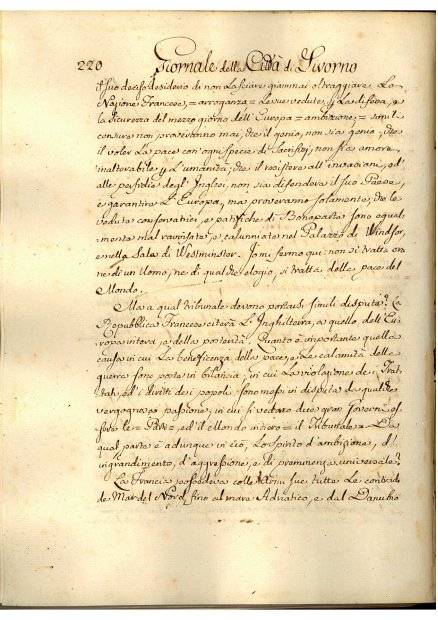 220 Giornale della Città di Livorno
il suo deciso desiderio di non lasciare giammai oltraggiare La
Nazione Francese, = arroganza = Le sue vedute p. La difesa, e
la sicurezza del mezzo giorno dell'Europa = ambizione, = simili
censure non proveranno mai, che il genio, non sia genio, che
il voler La pace con ogni specie di Sacrifizj, non sia amore
inalterabile p. L'umanità, che il resistere all'invasioni, ed
alle perfidie degl'Inglesi, non sia difendere il suo Paese,
e garantire L'Europa, ma proveranno solamente, che le
vedute conservatrici, e pacifiche di Bonaparte sono egual-
mente mal ravvisate, e calunniate nel Palazzo di Windsor,
e nella Sala di Westminster. Io mi fermo quì: non si tratta on-
ne di un Uomo, ne di qualche elogio, si tratta della pace del
Mondo.
Ma a qual tribunale devono portarsi simili dispute? La
Repubblica Francese citerà L'Inghilterra, a quello dell'Eu-
ropa intera, e della posterità. Quanto è importante quella
causa in cui La beneficenza della pace, e Le calamità della
guerra sono poste in bilancia, in cui La violazione dei Trat-
tati, ed i diritti dei popoli sono messi in disputa da qualche
vergognosa passione, in cui si vedono due gran Governi es-
sere le = Parti =, ed il Mondo intiero = il Tribunale = Da
qual parte è adunque in ciò, Lo spirito d'ambizione, d'
ingrandimento, d'aggressione, e di preminenza universale?
La Francia possedeva colle Armi sue tutte Le contrade
da Mar del Nord, fino al mare Adriatico, e dal Danubio